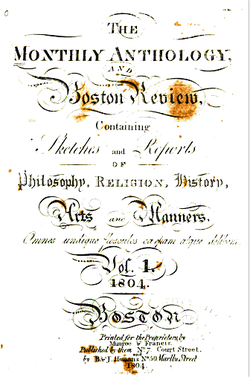 The
Monthly Anthology,
AND
Boston Review,
Containing
Sketches and Reports
OF
Philosophy, Religion, History,
Arts and Manners.
Omnes undique
Vol. 1.
1804.
Boston
Printed for the Proprietors, by
Munroe & Francis.
Published by them No 7 Court Street.
by B. & J. No 50 Marlbo. Street
1804